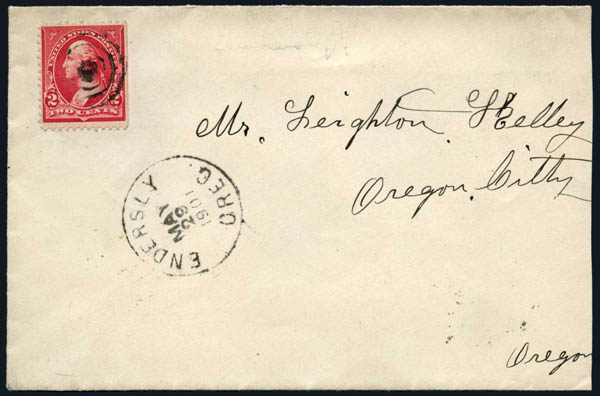 UNITED STATES POSTAGE
2 2
TWO CENTS
Mr. Leighton Kelley
Oregon Citty
Oregon
ENDERSLY OREG.
MAY
29
1901